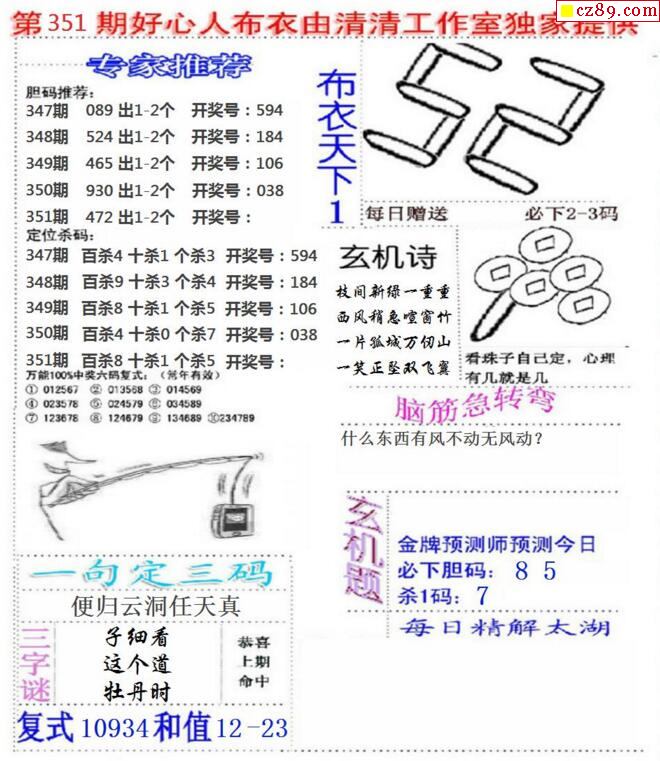 第351期好心人布衣由清清工作室独家提供
cz89.com
专家推荐
胆码推荐:
347期 089出1-2个 开奖号:594
348期 524出1-2个 开奖号:184
349期 465出1-2个 开奖号:106
350期 930出1-2个 开奖号:038
351期 472出1-2个 开奖号:
定位杀码:
347期 百杀4 十杀1 个杀3 开奖号:594
348期 百杀9 十杀3 个杀4 开奖号:184
349期 百杀8 十杀1 个杀5 开奖号:106
350期 百杀4 十杀0 个杀7 开奖号:038
351期 百杀8 十杀1 个杀5 开奖号:
万能100%中奖六码复式:(常年有效)
① 012567 ② 013568 ③ 014569
④ 023578 ⑤ 024579 ⑥ 034589
⑦ 123678 ⑧ 124679 ⑨ 134689 ⑩234789
布衣天下1
52
每日赠送 必下2-3码
玄机诗
枝间新绿一重重
西风稍急喧窗竹
一片孤城万仞山
一笑正坠双飞翼
看珠子自己定,心理
有几就是几
脑筋急转弯
什么东西有风不动无风动?
玄机题
金牌预测师预测今日
必下胆码: 8 5
杀1码: 7
每日精解太湖
一句定三码
便归云洞任天真
三字谜
子细看
这个道
牡丹时
恭喜
上期
命中
复式10934和值12-23